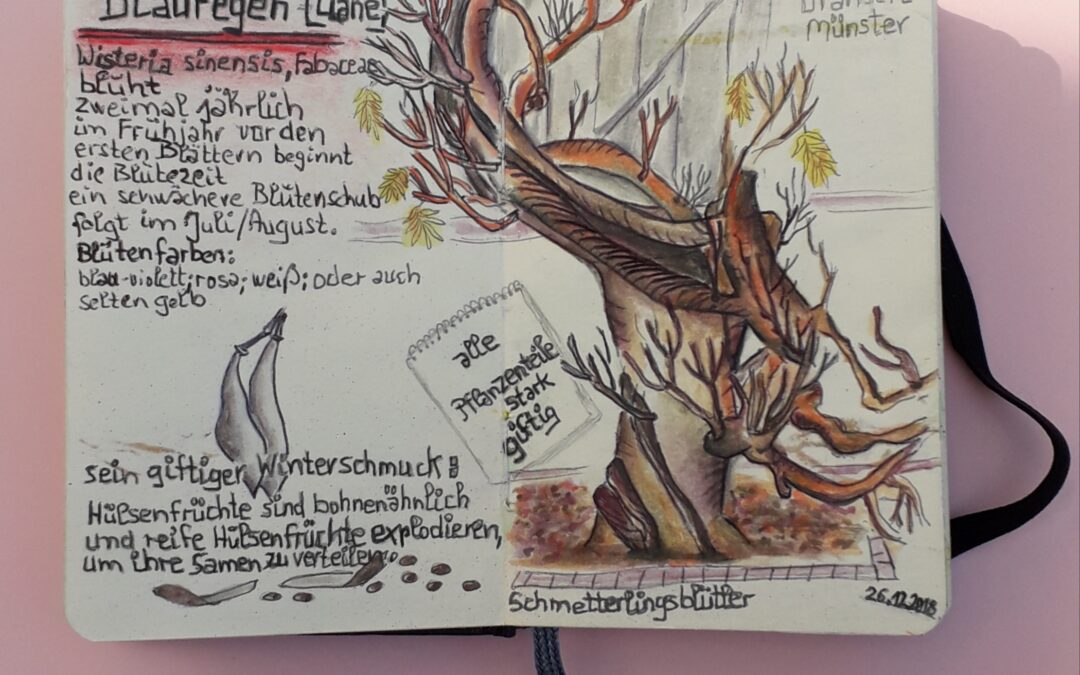 Blauregen (Liane)
Wisteria sinensis, Fabaceae
blüht
zweimal jährlich
im Frühjahr vor den
ersten Blättern beginnt
die Blütezeit
ein schwächere Blütenschub
folgt im Juli/August.
Blütenfarben:
blau-violett; rosa; weiß; oder auch
selten gelb
Münster
alle
Pflanzenteile
stark
giftig
sein giftiger Winterschmuck:
Hülsenfrüchte sind bohnenähnlich
und reife Hülsenfrüchte explodieren,
um ihre Samen zu verteilen.
Schmetterlingsblütler
26.12.2018